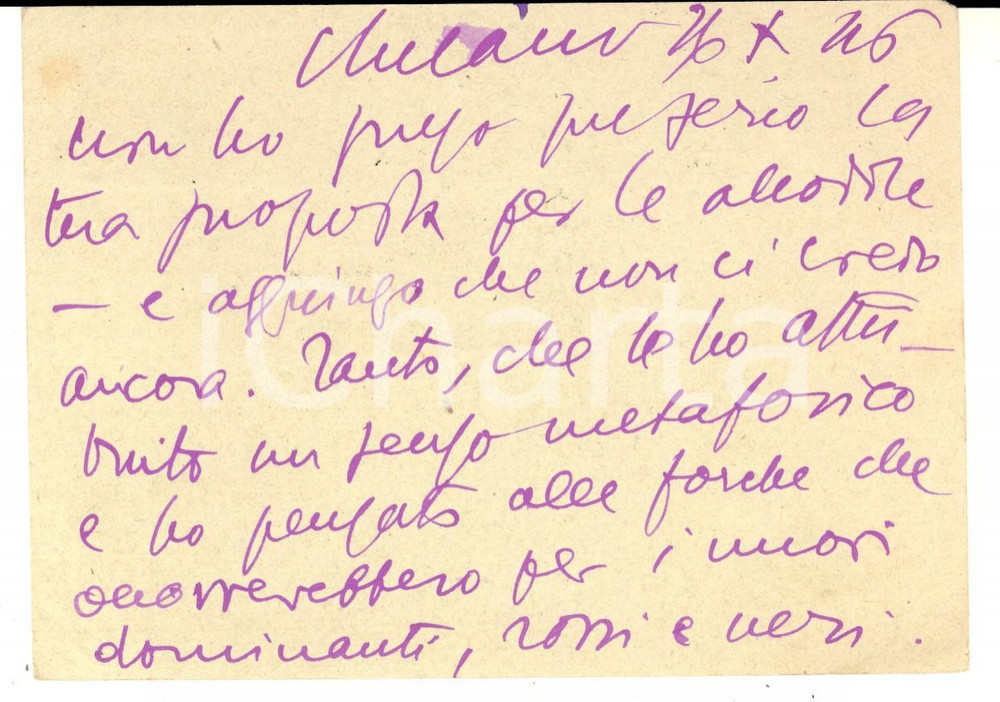 Milano 26 X 46
non ho preso sul serio la
tua proposta per le
— e aggiungo che non ci credo
ancora. Tanto, che le ho attri–
buito un senso metaforico
e ho pensato alle forche che
occorrerebbero per i nuovi
dominanti, rossi e neri.
iCharta